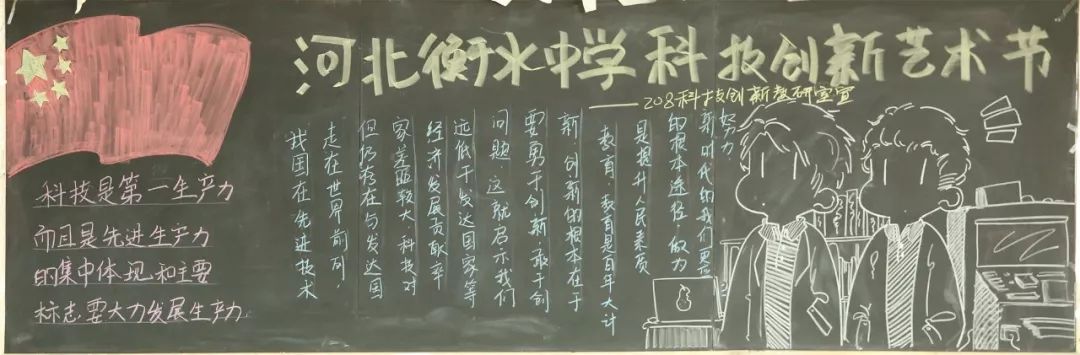 河北衡水中学科技创新艺术节
——208科技创新教研室宣
科技是第一生产力
而且是先进生产力
的集中体现和主要
标志要大力发展生产力
我国在先进技术
走在世界前列,
但仍存在与发达国
家差距较大,科技对
经济发展贡献率
远低于发达国家等
问题,这就启示我们
要勇于创新,敢于创
新,创新的根本在于
教育,教育是百年大计
是提升人民素质
的根本途径,做为
新时代的我们更应
努力